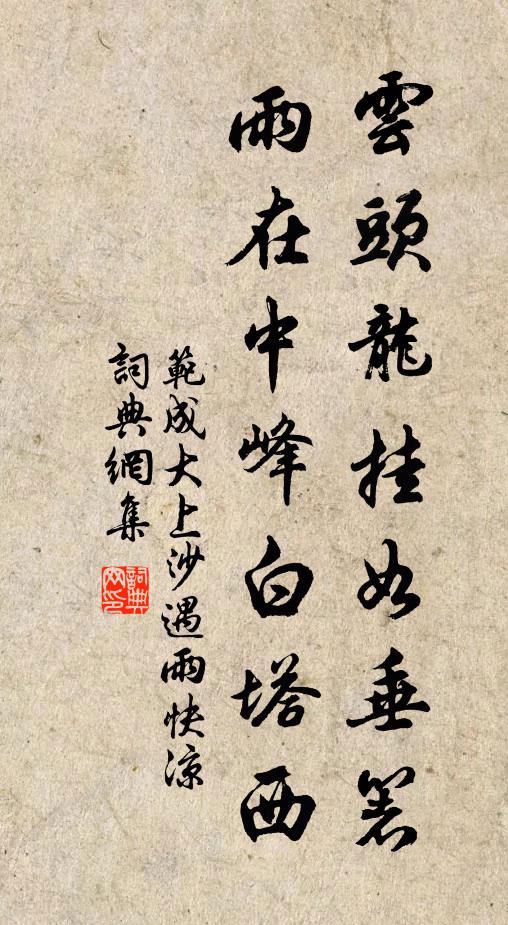 雲頭龍挂如垂箸
雨在中峰白塔西
範成大上沙遇雨快涼
詞典網集
詞典网印